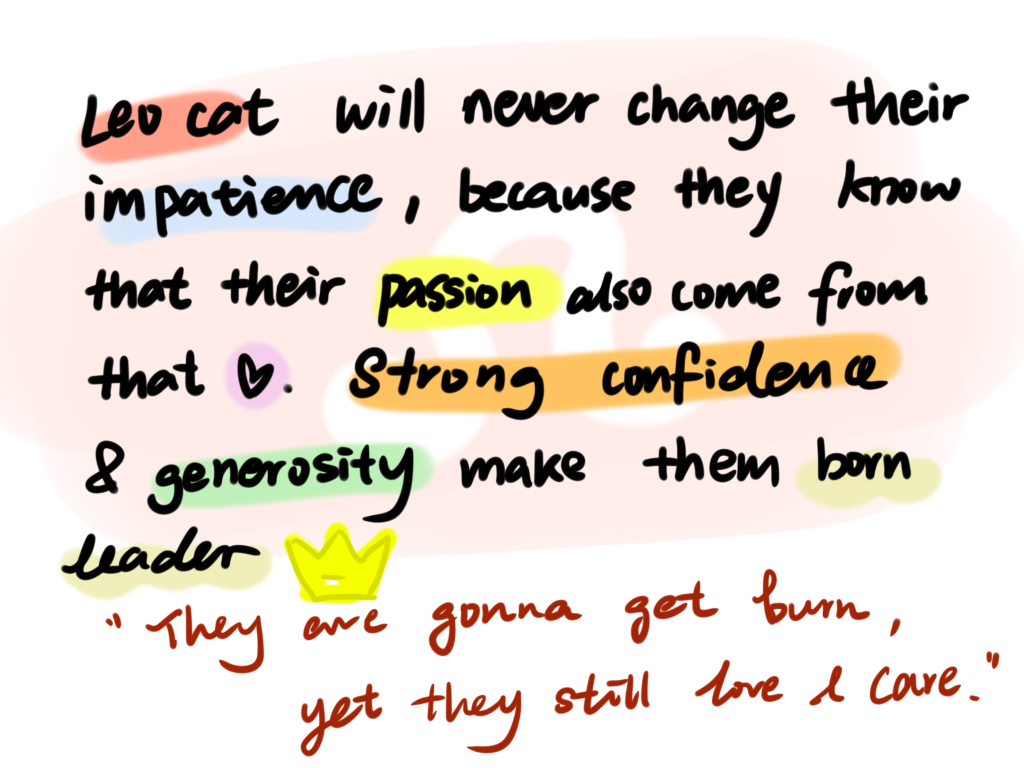 Leo cat will never change their
impatience, because they know
that their passion also come from
that ♡. Strong confidence
& generosity make them born
leader
"They are gonna get burn,
yet they still love & care."